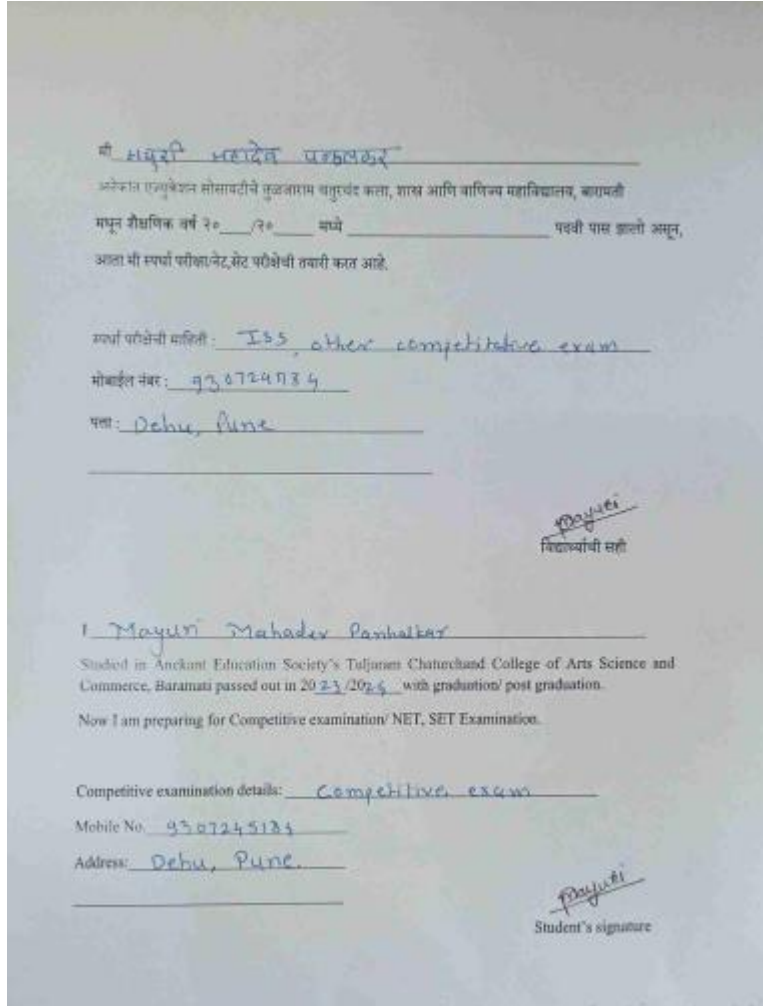 मी मयुरी महादेव पन्हाळकर
अनेकान्त एज्युकेशन सोसायटीचे तुळजाराम चतुरचंद कला, शास्त्र आणि वाणिज्य महाविद्यालय, बारामती
मधून शैक्षणिक वर्ष २०____/२०____ मध्ये ____________________ पदवी पास झालो असून,
आता मी स्पर्धा परीक्षा/नेट,सेट परीक्षेची तयारी करत आहे.
स्पर्धा परीक्षेची माहिती : ISS, other competitative exam
मोबाईल नंबर :
पत्ता : Dehu, Pune
Mayuri
विद्यार्थ्याची सही
I Mayuri Mahadev Panhalkar
Studied in Anekant Education Society's Tuljaram Chaturchand College of Arts Science and
Commerce, Baramati passed out in 2023/202 with graduation/ post graduation.
Now I am preparing for Competitive examination/ NET, SET Examination.
Competitive examination details: Competitive exam
Mobile No. 9307245184
Address: Dehu, Pune.
Mayuri
Student's signature